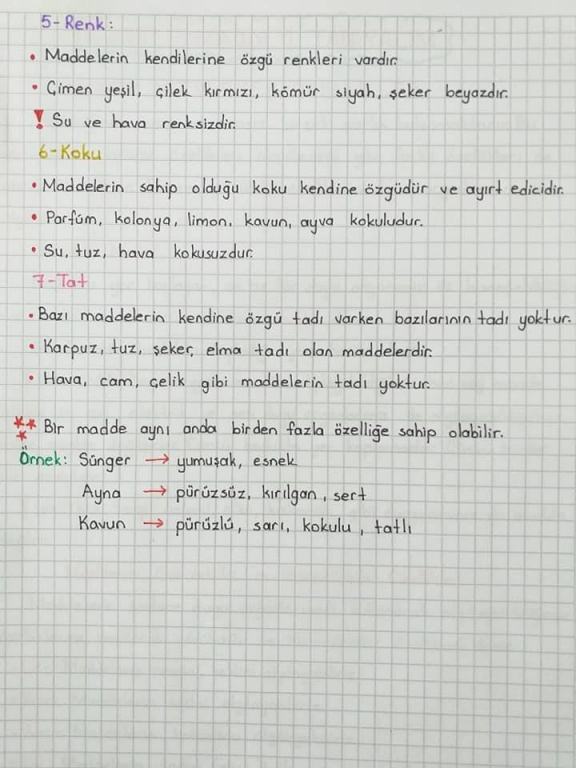 5-Renk:
• Maddelerin kendilerine özgü renkleri vardır.
• Çimen yeşil, çilek kırmızı, kömür siyah, şeker beyazdır.
! Su ve hava renksizdir.
6-Koku
• Maddelerin sahip olduğu koku kendine özgüdür ve ayırt edicidir.
• Parfüm, kolonya, limon, kavun, ayva kokuludur.
• Su, tuz, hava kokusuzdur.
7-Tat
• Bazı maddelerin kendine özgü tadı varken bazılarının tadı yoktur.
• Karpuz, tuz, şeker, elma tadı olan maddelerdir.
• Hava, cam, çelik gibi maddelerin tadı yoktur.
*** Bir madde aynı anda birden fazla özelliğe sahip olabilir.
Örnek: Sünger → yumuşak, esnek
Ayna → pürüzsüz, kırılgan, sert
Kavun → pürüzlü, sarı, kokulu, tatlı